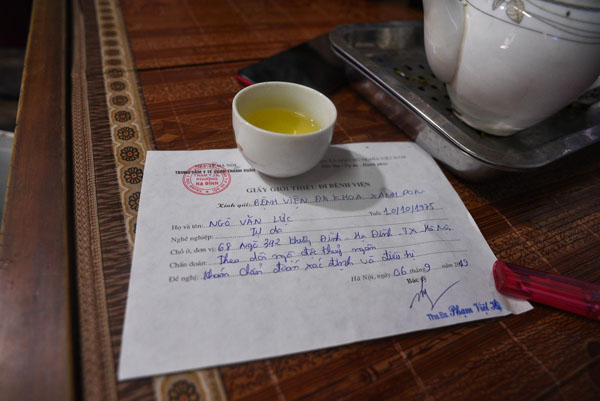 SỞ Y TẾ HÀ NỘI
TRUNG TÂM Y TẾ QUẬN THANH XUÂN
TRẠM Y TẾ
PHƯỜNG
HẠ ĐÌNH
GIẤY GIỚI THIỆU ĐI BỆNH VIỆN
Kính gửi: BỆNH VIỆN ĐA KHOA XANH PON
Họ và tên: NGÔ VĂN LỰC Tuổi: 10/10/1975
Nghề nghiệp: Tự do
Chỗ ở, đơn vị: 68 Ngõ 342 Khương Đình - Hạ Đình - TX - Hà Nội
Chẩn đoán: Theo dõi ngộ độc thuỷ ngân
Đề nghị: Khám chẩn đoán xác định và điều trị
Hà Nội, ngày 06 tháng 9 năm 2019
Bác sĩ
Ths.Bs. Phạm Việt